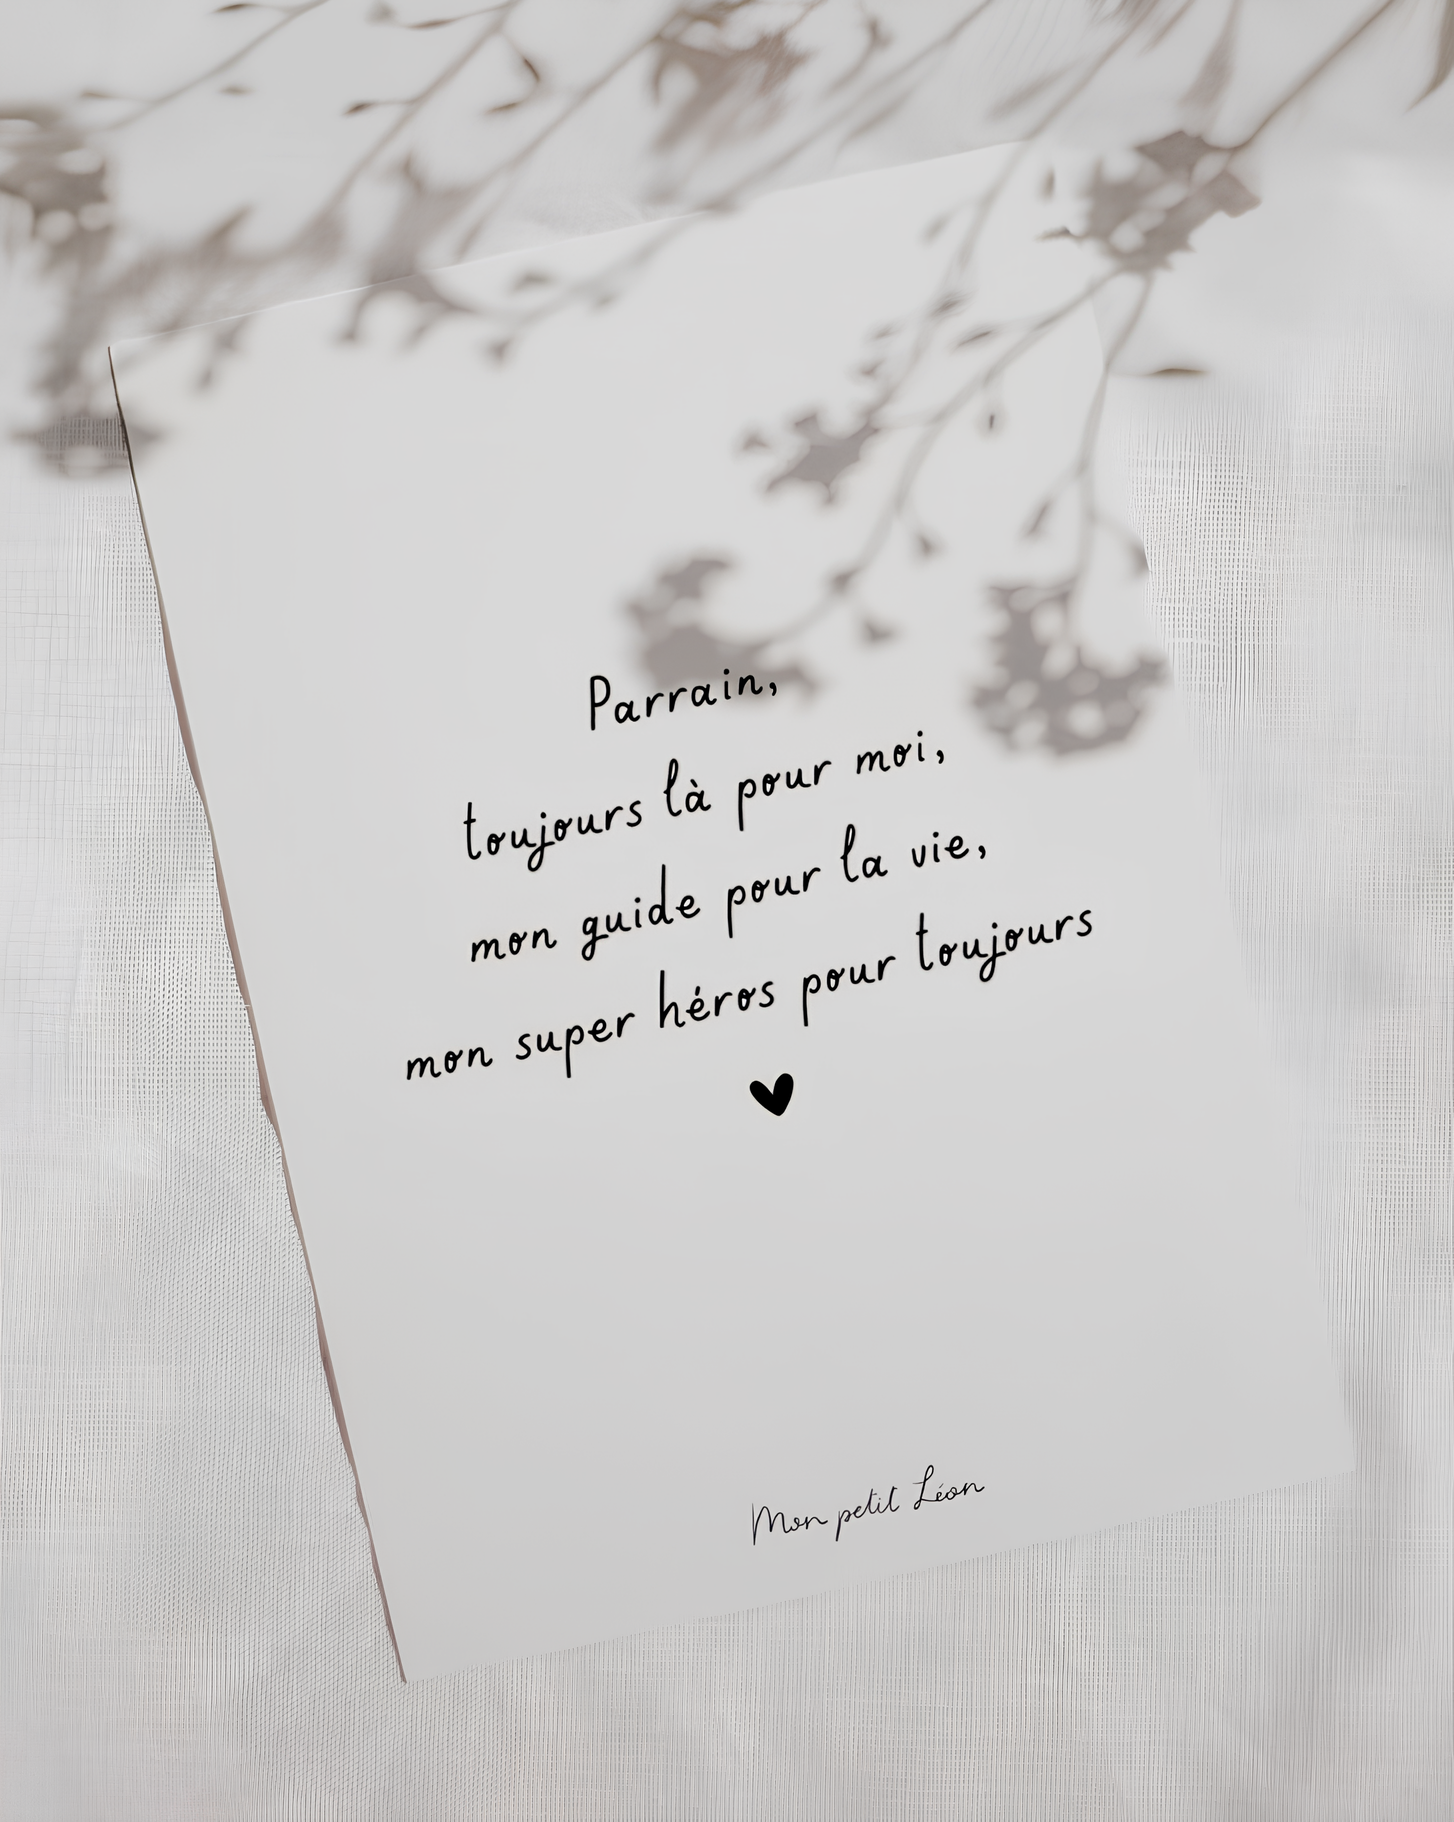 Parrain,
toujours là pour moi,
mon guide pour la vie,
mon super héros pour toujours
Mon petit Léon